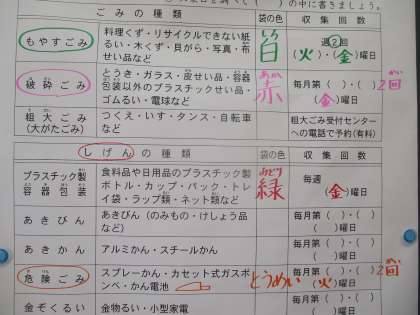 の中に書きましょう。
ごみの種類 袋の色 収集回数
もやすごみ
料理くず・リサイクルできない紙
るい・木くず・貝がら・写真・布
せい品など
しろ
白
週②回
(火)・(金)曜日
破砕ごみ
とうき・ガラス・皮せい品・容器
包装以外のプラスチックせい品・
ゴムるい・電球など
あか
赤
毎月第( )・( ) 2回
(金)曜日
粗大ごみ
(大がたごみ)
つくえ・いす・タンス・自転車
など
粗大ごみ受付センター
への電話で予約(有料)
しげんの種類 袋の色 収集回数
プラスチック製
容器包装
食料品や日用品のプラスチック製
ボトル・カップ・パック・トレ
イ袋・ラップ類・ネット類など
みどり
緑
毎週
(金)曜日
あきびん
あきびん(のみもの・けしょう品
など)
毎月第( )・( )
( )曜日
あきかん
アルミかん・スチールかん
毎月第( )・( )
( )曜日
危険ごみ
スプレーかん・カセット式ガスボ
ンベ・かん電池
とうめい
毎月第( )・( ) 2回
(火)曜日
金ぞくるい
金物るい・小型家電
毎月第( )・( )